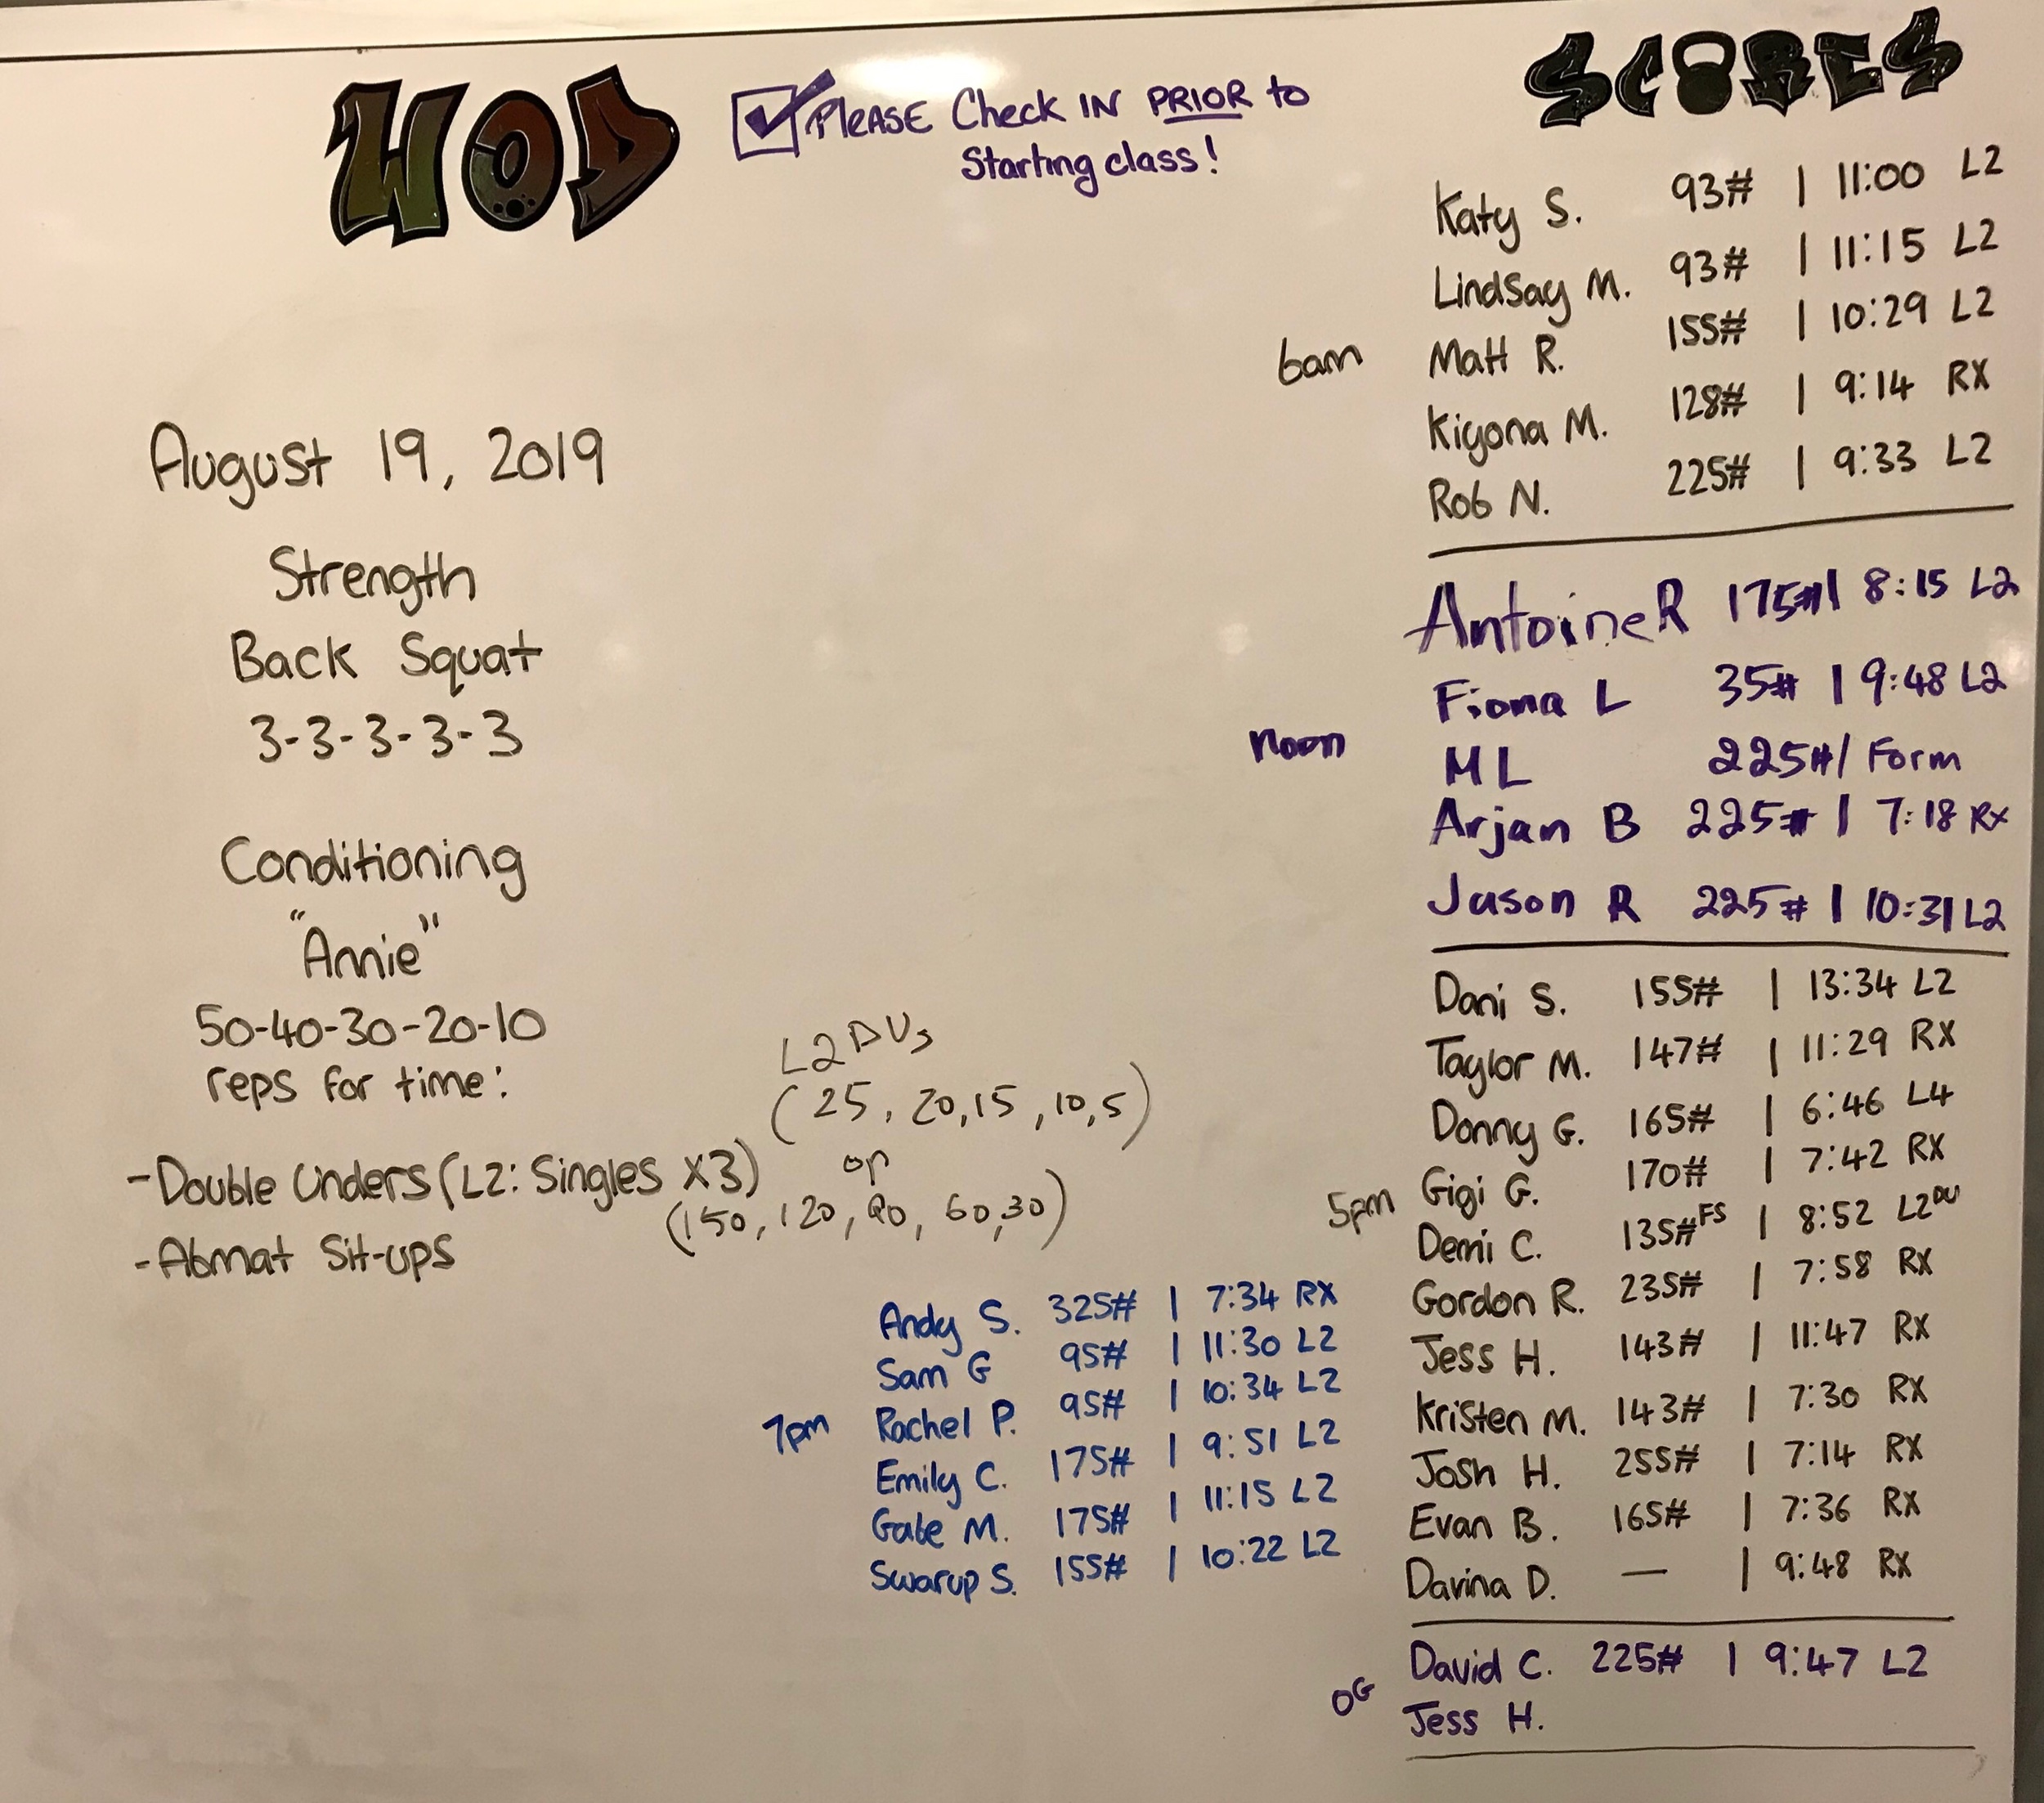 WOD
PLEASE Check IN PRIOR to
Starting class!
August 19, 2019
Strength
Back Squat
3-3-3-3-3
Conditioning
"Annie"
50-40-30-20-10
reps for time:
-Double Unders (L2: Singles X3)
-Abmat Sit-ups
L2 DUs
(25, 20, 15, 10, 5)
or
(150, 120, 90, 60, 30)
SCORES
6am
Katy S. 93# | 11:00 L2
Lindsay M. 93# | 11:15 L2
Matt R. 155# | 10:29 L2
Kiyona M. 128# | 9:14 RX
Rob N. 225# | 9:33 L2
noon
Antoine R 175# | 8:15 L2
Fiona L 35# | 9:48 L2
M L 225# / Form
Arjan B 225# | 7:18 Rx
Jason R 225# | 10:31 L2
5pm
Dani S. 155# | 13:34 L2
Taylor M. 147# | 11:29 RX
Donny G. 165# | 6:46 L4
Gigi G. 170# | 7:42 RX
Demi C. 135# FS | 8:52 L2 DU
Gordon R. 235# | 7:58 RX
Jess H. 143# | 11:47 RX
Kristen M. 143# | 7:30 RX
Josh H. 255# | 7:14 RX
Evan B. 165# | 7:36 RX
Davina D. — | 9:48 RX
7pm
Andy S. 325# | 7:34 RX
Sam G 95# | 11:30 L2
Rachel P. 95# | 10:34 L2
Emily C. 175# | 9:51 L2
Gabe M. 175# | 11:15 L2
Swarup S. 155# | 10:22 L2
OG
David C. 225# | 9:47 L2
Jess H.